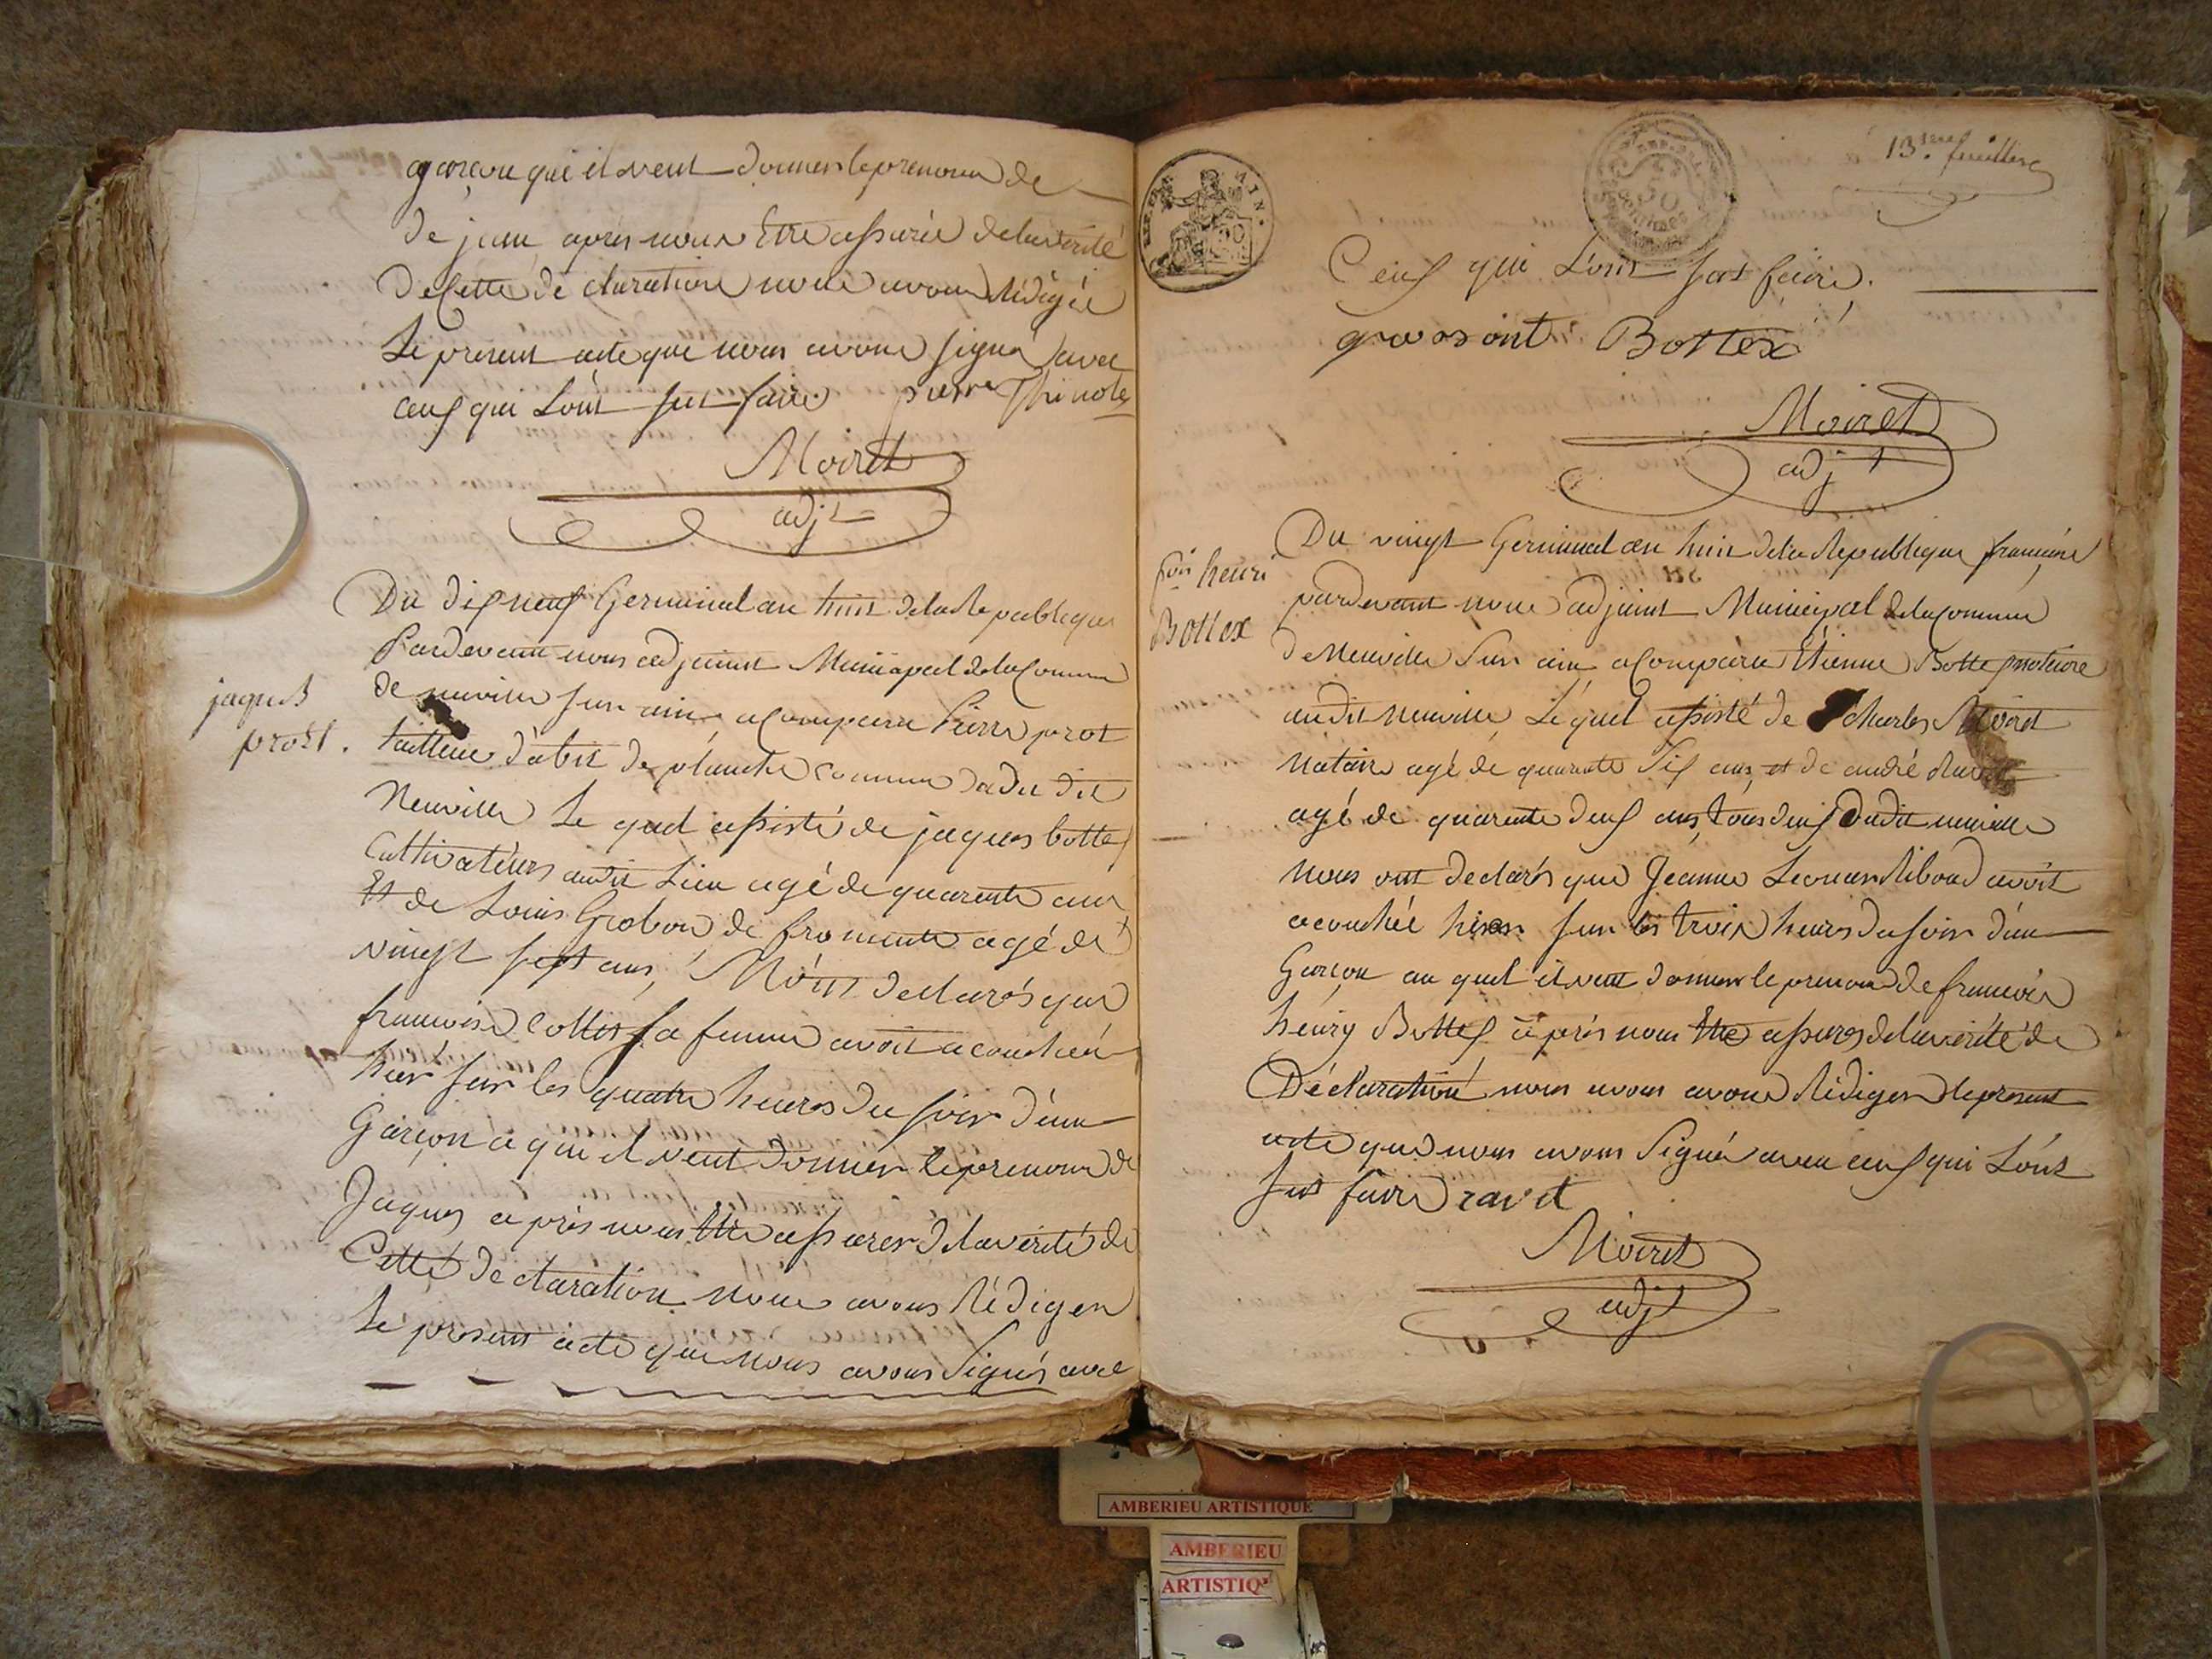 garçon qui il veut donner le prenom de
de jean après nous Etre assurée de la verité
de Cette déclaration nous avons rédigée
Le present acte que nous avons signé avec
ceux qui L'ont sut faire. pierre
Moiret
adjt
Du dix neuf Germinal an huit de la Republique
Pardevant nous adjoint Municipal de la Commune
de neuville sur ain a Comparu Pierre prost
jaques
prost.
tailleur d'abit de planche Commune dudit
Neuville Le quel assisté de jaques bottex
Cultivateurs audit Lieu agé de quarente ans
Et de Louis Grobon de fromente agé de
vingt sept ans, Nous declarés que
francoise sa femme avoit acouchée
hier sur les quatre heures du soir d'un
Garçon a qui il veut donner le prenom de
Jaques après nous Etre assurer de la verité de
Cette declaration nous avons rédiger
Le present acte que nous avons Signés avec
13.eme feuillet
AIN.
50
Ceux qui L'ont sut faire.
Bottex
Moiret
adjt
fois henri
Bottex
Du vingt Germinal an huit de la Republique francaise
pardevant nous adjoint Municipal de la Commune
de Neuville Sur ain a Comparu Etienne Botte
audit neuville, Lequel assisté de Charles Moiret
Notaire agé de quarente Six ans, et de andré
agé de quarente deux ans, tous deux dudit neuville
nous ont declarés que Jeanne Leonard Riboud avoit
acouchée hier sur les trois heures du soir d'un
Garcon au quel il veut donner le prenom de francois
henry Bottex après nous Etre assures de la verité de
Déclaration nous avons avons rédiger le present
acte que nous avons Signé avec ceux qui L'ont
sut faire ravet
Moiret
adjt
AMBERIEU ARTISTIQUE
AMBERIEU
ARTISTIQ